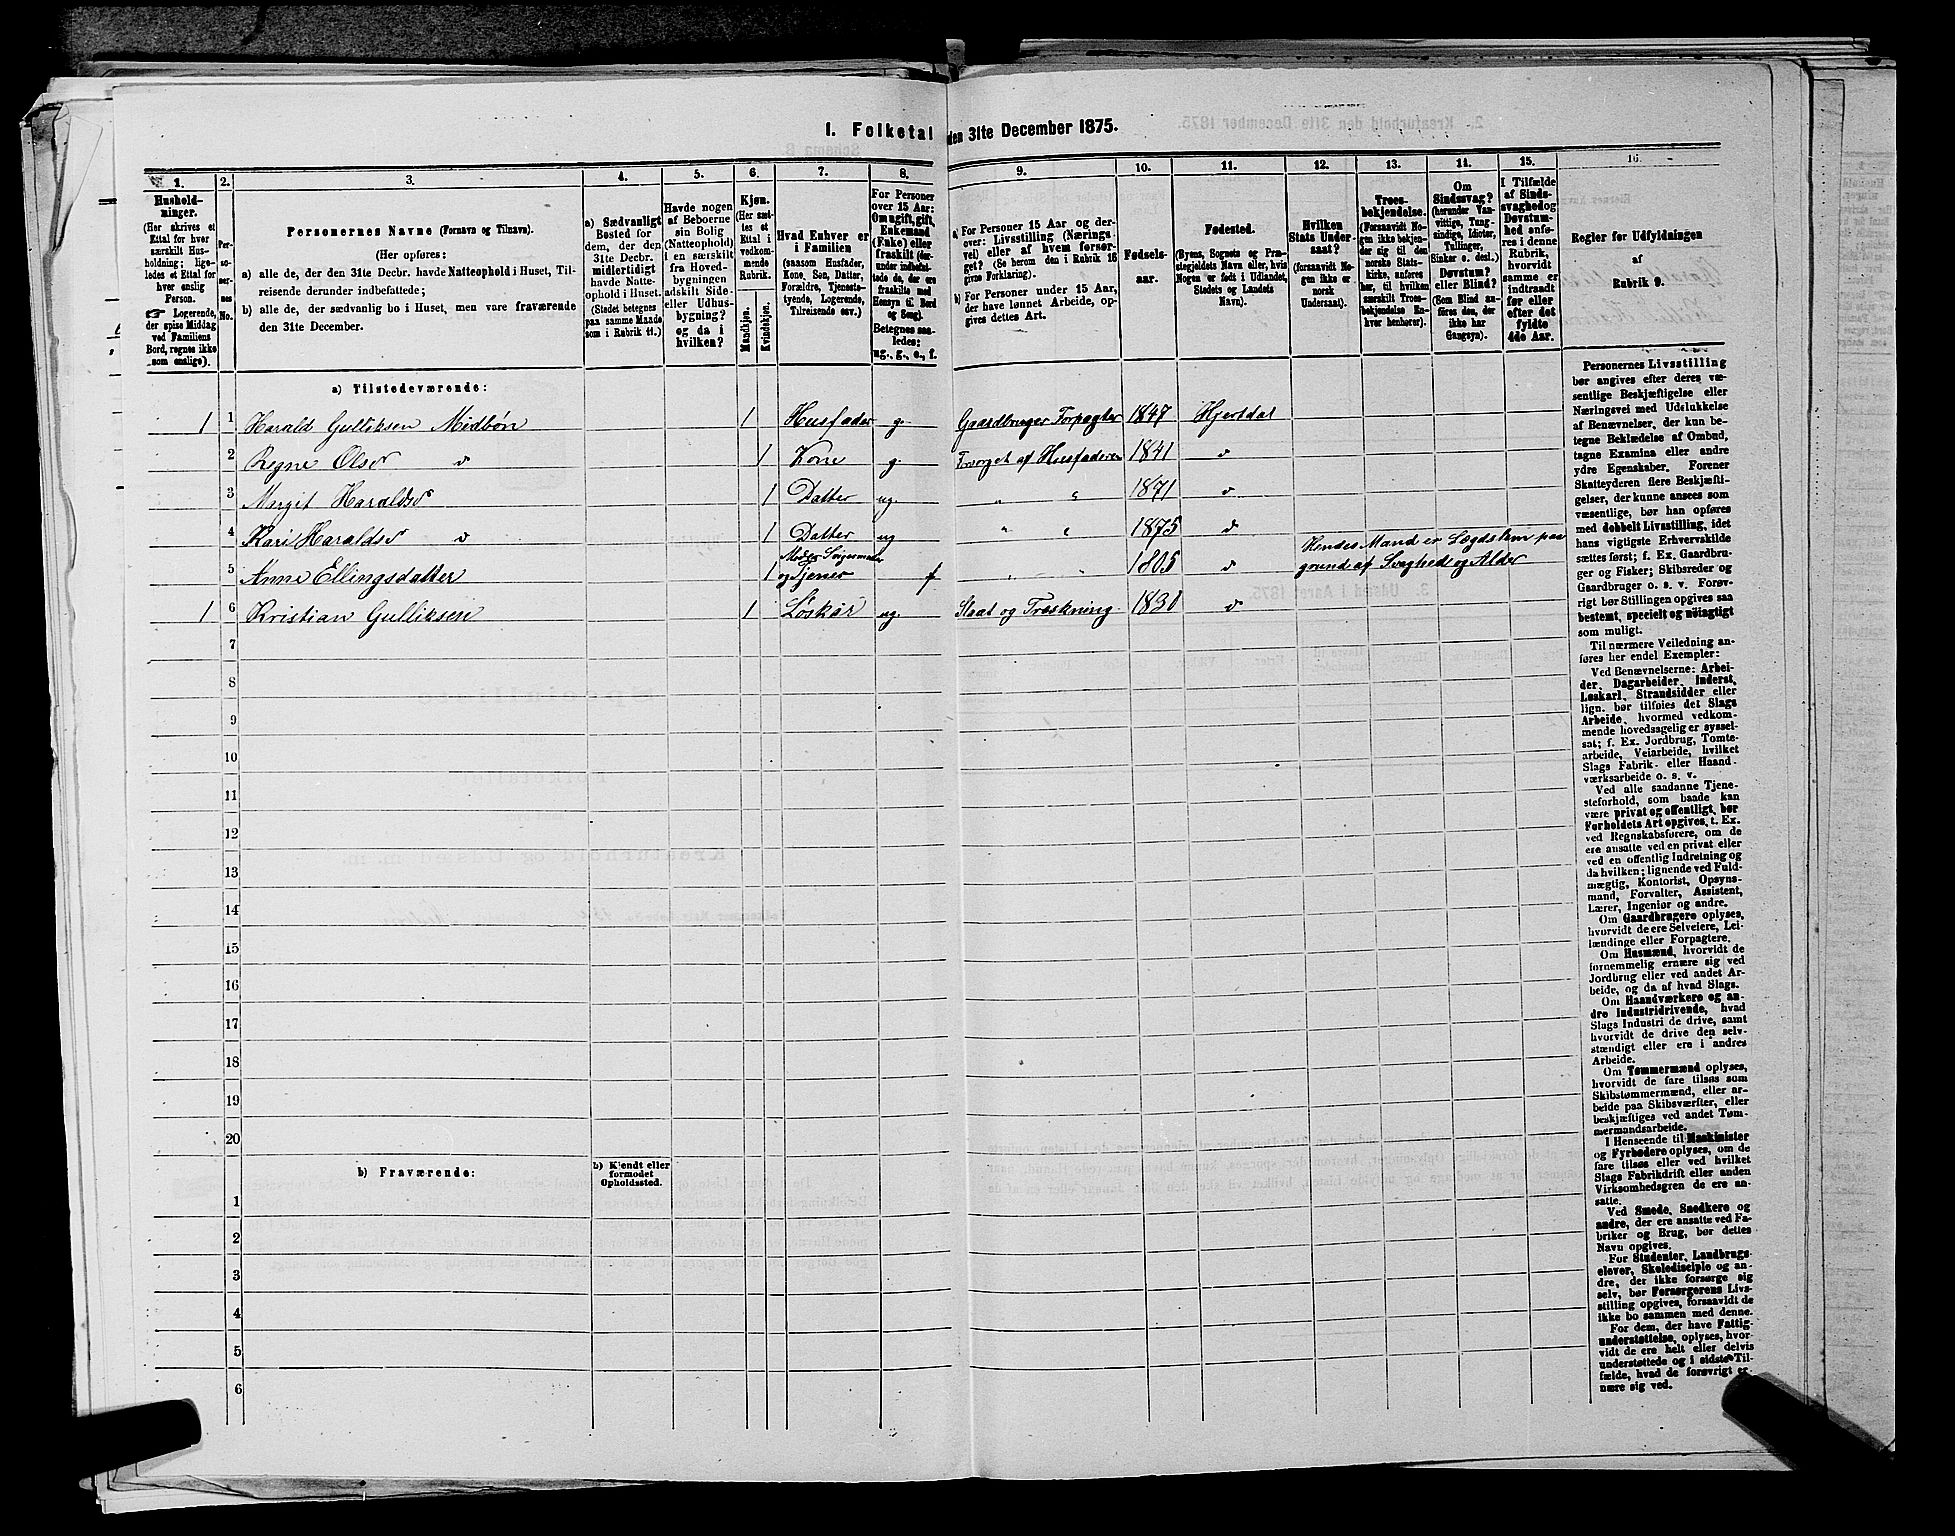 1. Folketal den 31te December 1875.
1. 2. 3. 4. 5. 6. 7. 8. 9. 10. 11. 12. 13. 14. 15. 16.
Hushold-
ninger.
(Her skrives et
Ettal for hver
særskilt Hus-
holdning; lige-
ledes et Ettal for
hver enslig
Person.
Logerende,
der spise Middag
ved Familiens
Bord, regnes ikke
som enslige).
Per-
so-
ner-
nes
No.
Personernes Navne (Fornavn og Tilnavn).
(Her opføres:
a) alle de, der den 31te Decbr. havde Natteophold i Huset, Til-
reisende derunder indbefattede;
b) alle de, der sædvanlig bo i Huset, men vare fraværende
den 31te December.
a) Sædvanligt
Bosted for
dem, der den
31te Decbr.
midlertidigt
havde Natte-
ophold i Huset.
(Stedet betegnes
paa samme Maade
som i Rubrik 11.)
Havde nogen
af Beboerne
sin Bolig
(Natteophold)
i en særskilt
fra Hoved-
bygningen
adskilt Side-
eller Udhus-
bygning?
og da i
hvilken?
Kjøn.
(Her sæt-
tes et
Ettal i
vedkom-
mende
Rubrik.
Mandkjøn.
Kvindekjøn.
Hvad Enhver er
i Familien
(saasom Husfader,
Kone, Søn, Datter,
Forældre, Tjeneste-
tyende, Logerende,
Tilreisende osv.)
For Personer
over 15 Aar:
Om ugift, gift,
Enkemand
(Enke) eller
fraskilt (der-
under indbefat-
tede de, der ere
fraskilte med
Hensyn til Bord
og Seng).
Betegnes saa-
ledes:
ug., g., e., f.
a) For Personer 15 Aar og der-
over: Livsstilling (Nærings-
vei) eller af hvem forsør-
get? (Se herom den i Rubrik 16
givne Forklaring).
b) For Personer under 15 Aar,
der have lønnet Arbeide, op-
gives dettes Art.
Fødsels-
aar.
Fødested.
(Byens, Sognets og Præ-
stegjeldets Navn eller, hvis
Nogen er født i Udlandet,
Stedets og Landets
Navn).
Hvilken
Stats Under-
saat?
(forsaavidt No-
gen ikke er
norsk
Undersaat).
Troes-
bekjendelse.
(Forsaavidt No-
gen ikke bekjen-
der sig til den
norske Stats-
kirke, anføres
her, til hvilken
særskilt Troes-
bekjendelse En-
hver henhører).
Om
Sindssvag?
(herunder Van-
vittige, Tung-
sindige, Idioter,
Tullinger,
Sinker o. desl.)
Døvstum?
eller Blind?
(Som Blind an-
føres den, der
ikke har
Gangsyn).
I Tilfælde
af Sinds-
svaghed og
Døvstum-
hed anfø-
res i denne
Rubrik,
hvorvidt
samme er
indtraadt
før eller
efter det
fyldte
4de Aar.
Regler for Udfyldningen
af
Rubrik 9.
a) Tilstedeværende:
1 1 Harald Gulliksen Midbøn 1 Husfader g. Gaardbruger Forpagter 1847 Hjertdal
2 Regne Olsd d 1 Kone g. Forsorget af Husfaderen 1841 d
3 Margit Haraldsd 1 Datter ug. „ „ 1871 d
4 Kari Haraldsd d 1 Datter ug „ „ 1875 d
5 Anne Ellingsdatter 1 og Tjener f „ „ 1805 d Hendes Mand er Lægdslem paa
grund af Svaghed og Alder
1 6 Kristian Gulliksen 1 Løskar ug. Slaat og Træskning 1830 d
7
8
9
10
11
12
13
14
15
16
17
18
19
20
b) Fraværende:
b) Kjendt eller
formodet
Opholdssted.
1
2
3
4
5
6
Personernes Livsstilling
bør angives efter deres væ-
sentlige Beskjæftigelse eller
Næringsvei med Udelukkelse
af Benævnelser, der kun be-
tegne Beklædelse af Ombud,
tagne Examina eller andre
ydre Egenskaber. Forener
Skatteyderen flere Beskjæfti-
gelser, der kunne ansees som
væsentlige, bør han opføres
med dobbelt Livsstilling, idet
hans vigtigste Erhvervskilde
sættes først; f. Ex. Gaardbru-
ger og Fisker; Skibsreder og
Gaardbruger o. s. v. Forøv-
rigt bør Stillingen opgives saa
bestemt, specielt og nøiagtigt
som muligt.
Til nærmere Veiledning an-
føres her endel Exempler:
Ved Benævnelserne: Arbei-
der, Dagarbeider, Inderst,
Løskarl, Strandsidder eller
lign. bør tilføies det Slags
Arbeide, hvormed vedkom-
mende hovedsagelig er syssel-
sat; f. Ex. Jordbrug, Tomte-
arbeide, Veiarbeide, hvilket
Slags Fabrik- eller Haand-
værksarbeide o. s. v.
Ved alle saadanne Tjene-
steforhold, som baade kan
være privat og offentligt, bør
Forholdets Art opgives, t. Ex.
ved Regnskabsførere, om de
ere ansatte ved en privat eller
ved en offentlig Indretning og
da hvilken; lignende ved Fuld-
mægtig, Kontorist, Opsyns-
mand, Forvalter, Assistent,
Lærer, Ingeniør og andre.
Om Gaardbrugere oplyses,
hvorvidt de ere Selveiere, Lei-
lændinge eller Forpagtere.
Om Husmænd, hvorvidt de
fornemmelig ernære sig ved
Jordbrug eller ved andet Ar-
beide, og da af hvad Slags.
Om Haandværkere og an-
dre Industridrivende, hvad
Slags Industri de drive, samt
hvorvidt de drive den selv-
stændigt eller ere i andres
Arbeide.
Om Tømmermænd oplyses,
hvorvidt de fare tilsøs som
Skibstømmermænd, eller ar-
beide paa Skibsværfter, eller
beskjæftiges ved andet Tøm-
mermandsarbeide.
I Henseende til Maskinister
og Fyrbødere oplyses, om de
fare tilsøs eller ved hvilket
Slags Fabrikdrift eller anden
Virksomhedsgren de ere an-
satte.
Ved Smede, Snedkere og
andre, der ere ansatte ved Fa-
briker og Brug, bør dettes
Navn opgives.
For Studenter, Landbrugs-
elever, Skoledisciple og an-
dre, der ikke forsørge sig
selv, bør Forsørgerens Livs-
stilling opgives, forsaavidt de
ikke bo sammen med denne.
For dem, der have Fattig-
understøttelse, oplyses, hvor-
vidt de ere helt eller delvis
understøttede og i sidste Til-
fælde, hvad de forøvrigt er-
nære sig ved.